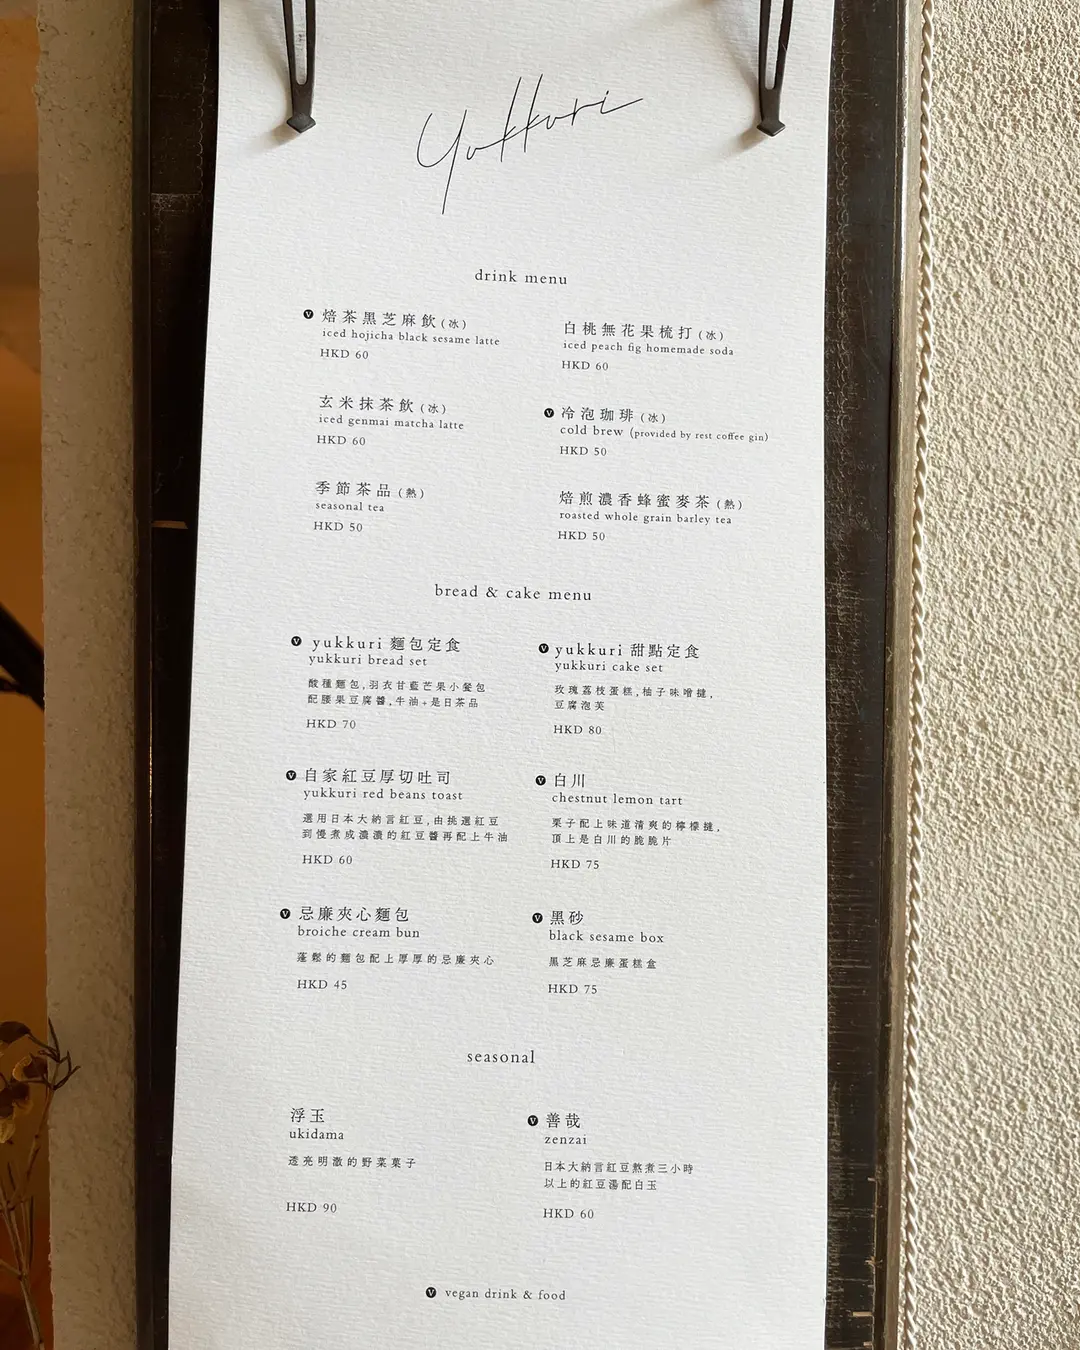 Yukkuri
drink menu
V 焙茶黑芝麻飲(冰)
iced hojicha black sesame latte
HKD 60
白桃無花果梳打(冰)
iced peach fig homemade soda
HKD 60
玄米抹茶飲(冰)
iced genmai matcha latte
HKD 60
V 冷泡珈琲(冰)
cold brew (provided by rest coffee gin)
HKD 50
季節茶品(熱)
seasonal tea
HKD 50
焙煎濃香蜂蜜麥茶(熱)
roasted whole grain barley tea
HKD 50
bread & cake menu
V yukkuri 麵包定食
yukkuri bread set
酸種麵包,羽衣甘藍芒果小餐包
配腰果豆腐醬,牛油+是日茶品
HKD 70
V yukkuri 甜點定食
yukkuri cake set
玫瑰荔枝蛋糕,柚子味噌撻,
豆腐泡芙
HKD 80
V 自家紅豆厚切吐司
yukkuri red beans toast
選用日本大納言紅豆,由挑選紅豆
到慢煮成濃濃的紅豆醬再配上牛油
HKD 60
V 白川
chestnut lemon tart
栗子配上味道清爽的檸檬撻,
頂上是白川的脆脆片
HKD 75
V 忌廉夾心麵包
broiche cream bun
蓬鬆的麵包配上厚厚的忌廉夾心
HKD 45
V 黑砂
black sesame box
黑芝麻忌廉蛋糕盒
HKD 75
seasonal
浮玉
ukidama
透亮明澈的野菜菓子
HKD 90
V 善哉
zenzai
日本大納言紅豆熬煮三小時
以上的紅豆湯配白玉
HKD 60
V vegan drink & food